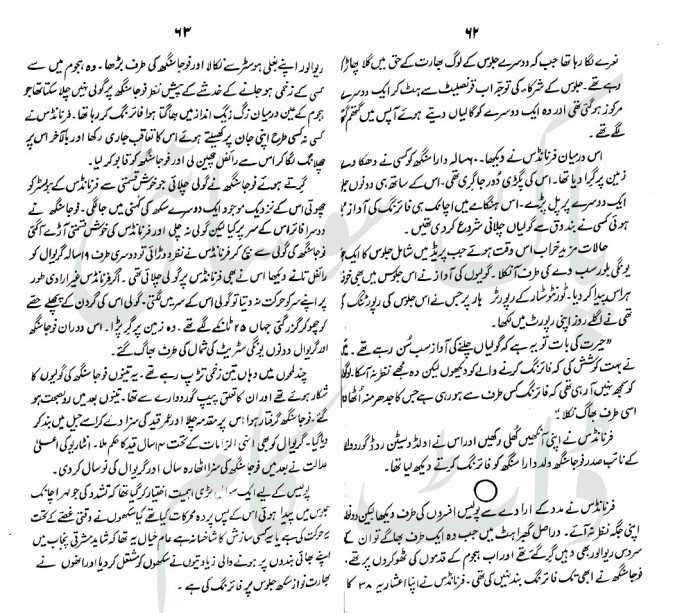 ۶۲
نعرے لگا رہا تھا جب کہ دوسرے جلوس کے لوگ بھارت کے حق میں گلا پھاڑ
رہے تھے۔ جلوس کے شرکاء کی توجہ اب قونصلیٹ سے ہٹ کر ایک دوسرے
مرکوز ہو گئی تھی اور وہ ایک دوسرے کو گالیاں دیتے ہوئے آپس میں گتھم
لگے تھے۔
اس درمیان فرنانڈس نے دیکھا۔ ۶۰ سالہ دارا سنگھ کو کسی نے دھکا دے
زمین پر گرا دیا تھا۔ اس کی پگڑی دُور جا گری تھی۔ اس کے ساتھ ہی دونوں
ایک دوسرے پر پل پڑے۔ اس ہنگامے میں اچانک ہی فائرنگ کی آواز
ہوئی کسی نے بندوق سے گولیاں چلانی شروع کر دی تھیں۔
حالات مزید خراب اس وقت ہوئے جب پریڈ میں شامل جلوس کا ایک
یونگی بلور سب وے کی طرف آ نکلا۔ گولیوں کی آواز نے اس جلوس میں بھی خوف
ہراس پیدا کر دیا۔ ٹورنٹو سٹار کے رپورٹر ہار پر جس نے اس جلوس کی رپورٹنگ
تھی نے اگلے روز اپنی رپورٹ میں لکھا۔
”حیرت کی بات تو یہ ہے کہ گولیاں چلنے کی آواز سب سُن رہے تھے۔
نے بہت کوشش کی کہ فائرنگ کرنے والے کو دیکھوں لیکن وہ مجھے نظر نہ آسکا۔
کو سمجھ نہیں آ رہی تھی کہ فائرنگ کس طرف سے ہو رہی ہے جس کا جدھر منہ اُٹھا
اسی طرف بھاگ نکلا“
فرنانڈس نے اپنی آنکھیں کھلی رکھیں اور اس نے اولڈ ویسٹن روڈ گوردوارا
کے نائب صدر فوجا سنگھ ولد دارا سنگھ کو فائرنگ کرتے دیکھ لیا تھا۔
فرنانڈس نے مدد کے ارادے سے پولیس افسروں کی طرف دیکھا لیکن
اپنی جگہ نظر نہ آئے۔ دراصل گھبراہٹ میں جب وہ ایک طرف بھاگے تو ان کے
سروس ریوالور بھی وہیں گر گئے تھے اور اب ہجوم کے قدموں کی ٹھوکروں پر تھے۔
فوجا سنگھ نے ابھی تک فائرنگ بند نہیں کی تھی۔ فرنانڈس نے اپنا اعشاریہ ۳۸ کا
۶۳
ریوالور اپنے بغلی ہوسٹر سے نکالا اور فوجا سنگھ کی طرف بڑھا۔ وہ ہجوم میں سے
کسی کے زخمی ہو جانے کے خدشے کے پیشِ نظر فوجا سنگھ پر گولی نہیں چلا سکتا تھا جو
ہجوم کے عین درمیان زگ زیگ انداز میں بھاگتا ہوا فائرنگ کر رہا تھا۔ فرنانڈس نے
کسی نہ کسی طرح اپنی جان پر کھیلتے ہوئے اس کا تعاقب جاری رکھا اور بالآخر اس پر
چھلانگ لگا کر اس سے رائفل چھین لی اور فوجا سنگھ کو قابو کر لیا۔
گرتے ہوئے فوجا سنگھ نے گولی چلائی جو خوش قسمتی سے فرنانڈس کے ہولسٹر کو
چھوتی اس کے نزدیک موجود ایک دوسرے سکھ کی کمر میں جا لگی۔ فوجا سنگھ نے
دوسرا فائر اس کے سر پر کیا لیکن گولی نہ چلی اور فرنانڈس کی خوش قسمتی آڑے آ گئی
فوجا سنگھ کی گولی سے بچ کر فرنانڈس نے نظر دوڑائی تو دوسری طرف ۱۷ سالہ گریوال کو
رائفل تانے دیکھا اس نے بھی فرنانڈس پر گولی چلائی تھی۔ اگر فرنانڈس غیر ارادی طور
پر اپنے سر کو حرکت نہ دیتا تو گولی اس کے سر میں لگتی۔ گولی اس کی گردن کے پچھلے حصے
کو چھو کر گزر گئی جہاں ۲۵ ٹانکے لگے تھے۔ وہ زمین پر گر پڑا۔ اس دوران فوجا سنگھ
اور گریوال دونوں یونگی سٹریٹ کی شمال کی طرف بھاگ گئے۔
چند لمحوں میں وہاں تین زخمی تڑپ رہے تھے۔ یہ تینوں فوجا سنگھ کی گولیوں کا
شکار ہوئے تھے اور ان کا تعلق پیپ گوردوارے سے تھا۔ تینوں بعد میں رو بصحت ہو
گئے۔ فوجا سنگھ گرفتار ہوا اس پر مقدمہ چلا اور عمر قید کی سزا دے کر اسے جیل میں بند کر
دیا گیا۔ گریوال کو بھی انہی الزامات کے تحت ۱۴ سال قید کا حکم ملا۔ انتاریو کی اعلیٰ
عدالت نے بعد میں فوجا سنگھ کی سزا اٹھارہ سال اور گریوال کی نو سال کر دی۔
پولیس کے لیے ایک سوال بڑی اہمیت اختیار کر گیا تھا کہ تشدد کی جو لہر اچانک
جلوس میں پیدا ہوئی اس کے پس پردہ محرکات کیا تھے کیا سکھوں نے وقتی غصے کے تحت
یہ حرکت کی ہے یا یہ کسی سازش کا شاخسانہ ہے عام خیال یہ تھا کہ شاید مشرقی پنجاب میں
اپنے بھائی بندوں پر ہونے والی زیادتیوں نے سکھوں کو مشتعل کر دیا اور انھوں نے
بھارت نواز سکھ جلوس پر فائرنگ کی ہے۔